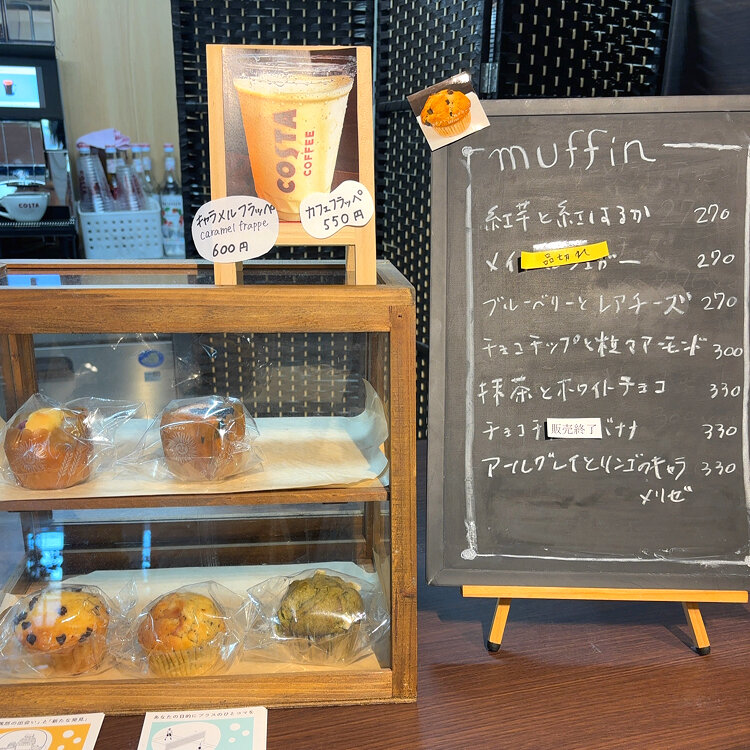 COSTA
COFFEE
キャラメルフラッペ
caramel frappe
600円
カフェフラッペ
550円
muffin
紅芋と紅はるか 270
メイ 品切れ ガー 270
ブルーベリーとレアチーズ 270
チョコチップと粒々アーモンド 300
抹茶とホワイトチョコ 330
チョコチ 販売終了 バナナ 330
アールグレイとリンゴのキャラ 330
メリゼ
COSTA
偶然の出会い」と「新たな発見」
あなたの目的にプラスのひとつを